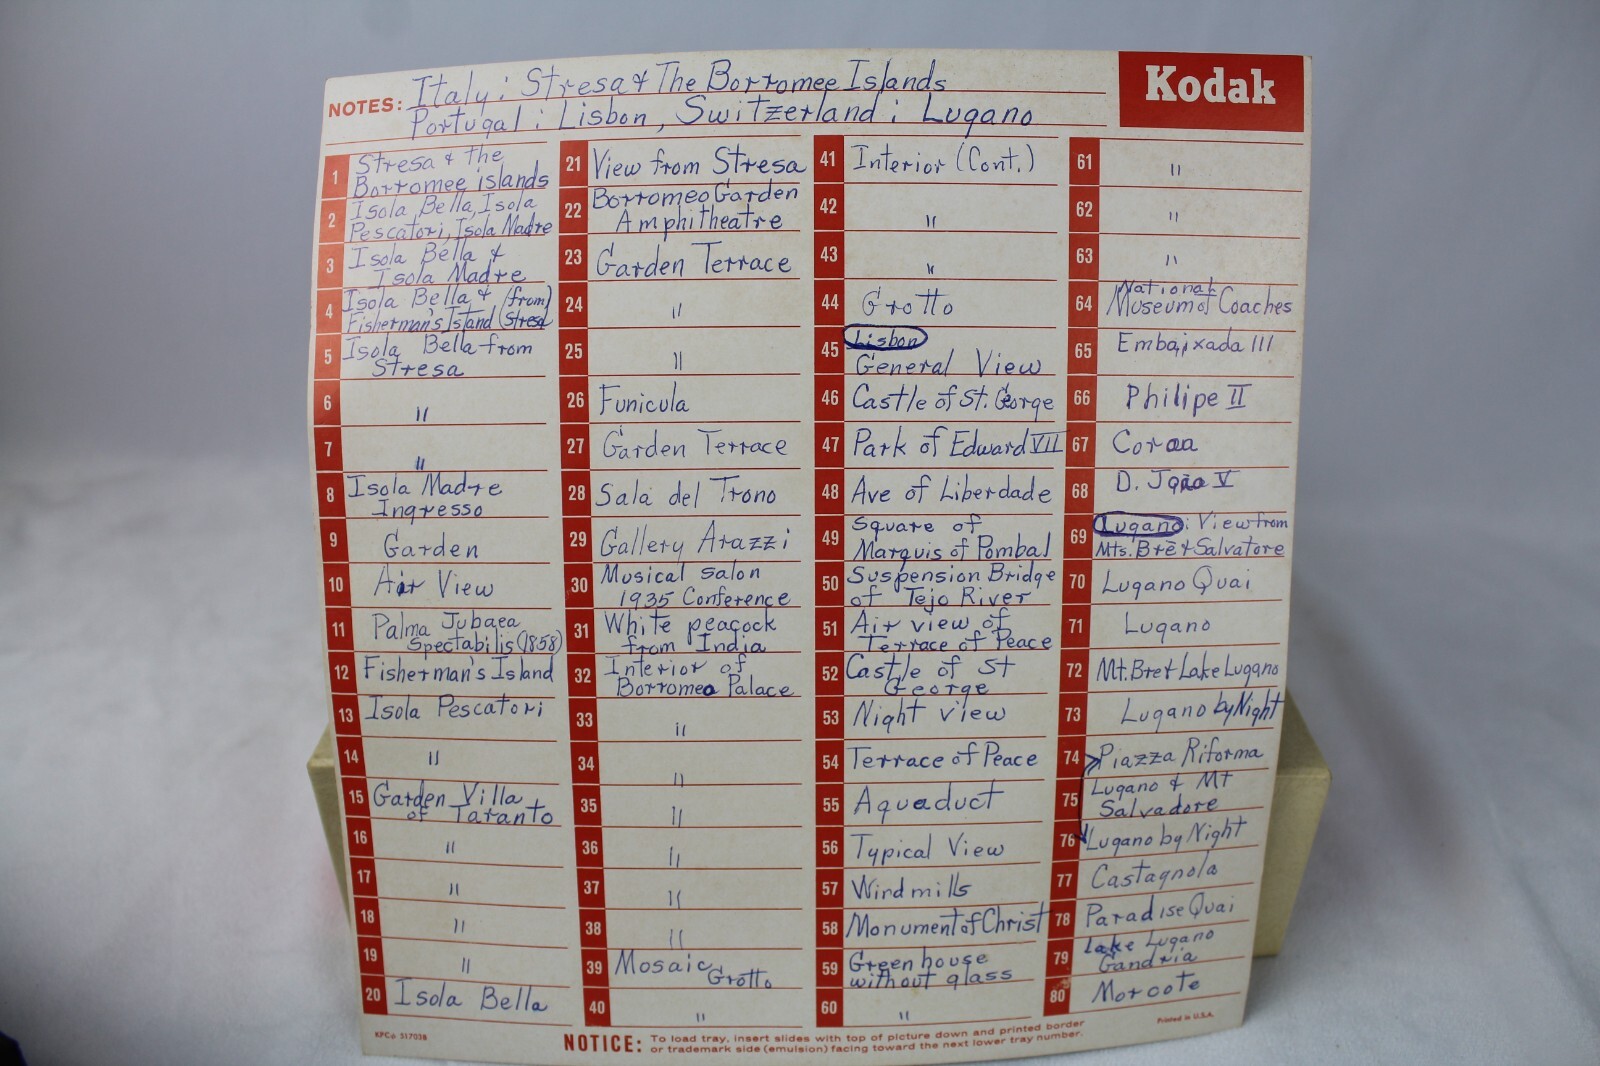 Kodak
NOTES: Italy: Stresa & The Borromee Islands
Portugal: Lisbon, Switzerland: Lugano
1 Stresa & the
Borromee islands
2 Isola Bella, Isola
Pescatori, Isola Madre
3 Isola Bella &
Isola Madre
4 Isola Bella & (from)
Fisherman's Island (Stresa
5 Isola Bella from
Stresa
6 "
7 "
8 Isola Madre
Ingresso
9 Garden
10 Air View
11 Palma Jubaea
Spectabilis (1858)
12 Fisherman's Island
13 Isola Pescatori
14 "
15 Garden Villa
of Taranto
16 "
17 "
18 "
19 "
20 Isola Bella
21 View from Stresa
22 Borromeo Garden
Amphitheatre
23 Garden Terrace
24 "
25 "
26 Funicula
27 Garden Terrace
28 Sala del Trono
29 Gallery Arazzi
30 Musical salon
1935 Conference
31 White peacock
from India
32 Interior of
Borromeo Palace
33 "
34 "
35 "
36 "
37 "
38 "
39 Mosaic
Grotto
40 "
41 Interior (Cont.)
42 "
43 "
44 Grotto
45 Lisbon
General View
46 Castle of St. George
47 Park of Edward VII
48 Ave of Liberdade
49 Square of
Marquis of Pombal
50 Suspension Bridge
of Tejo River
51 Air view of
Terrace of Peace
52 Castle of St
George
53 Night view
54 Terrace of Peace
55 Aquaduct
56 Typical View
57 Windmills
58 Monument of Christ
59 Green house
without glass
60 "
61 "
62 "
63 "
64 National
Museum of Coaches
65 Embaixada III
66 Philipe II
67 Coroa
68 D. João V
69 Lugano: View from
Mts. Brè & Salvatore
70 Lugano Quai
71 Lugano
72 Mt. Bret Lake Lugano
73 Lugano by Night
74 Piazza Riforma
75 Lugano & Mt
Salvadore
76 Lugano by Night
77 Castagnola
78 Paradise Quai
79 Lake Lugano
Gandria
80 Morcote
KPCo 51703B
NOTICE: To load tray, insert slides with top of picture down and printed border
or trademark side (emulsion) facing toward the next lower tray number.
Printed in U.S.A.